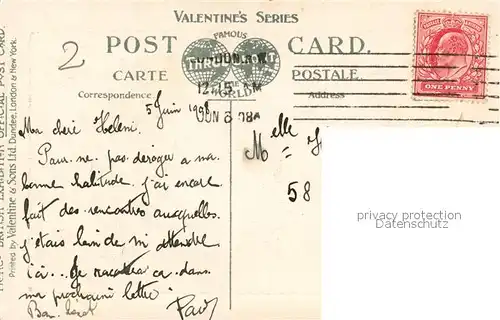 VALENTINE'S SERIES
2
POST CARD.
FAMOUS
WORLD
CARTE POSTALE.
LONDON. N.W.
12 15 PM
JUN 6 08
Correspondence. Address
ONE PENNY
5 Juin 1908
Ma chère Helene,
Pour ne pas déroger a ma
bonne habitude j'ai encore
fait des rencontres auxquelles
j'etais loin de m'attendre
ici... Je racontera ça dans
ma prochaine lettre.
Melle
58
privacy protection
Datenschutz
BRITISH EXHIBITION OFFICIAL POST CARD.
Printed by Valentine & Sons Ltd. Dundee, London & New York.